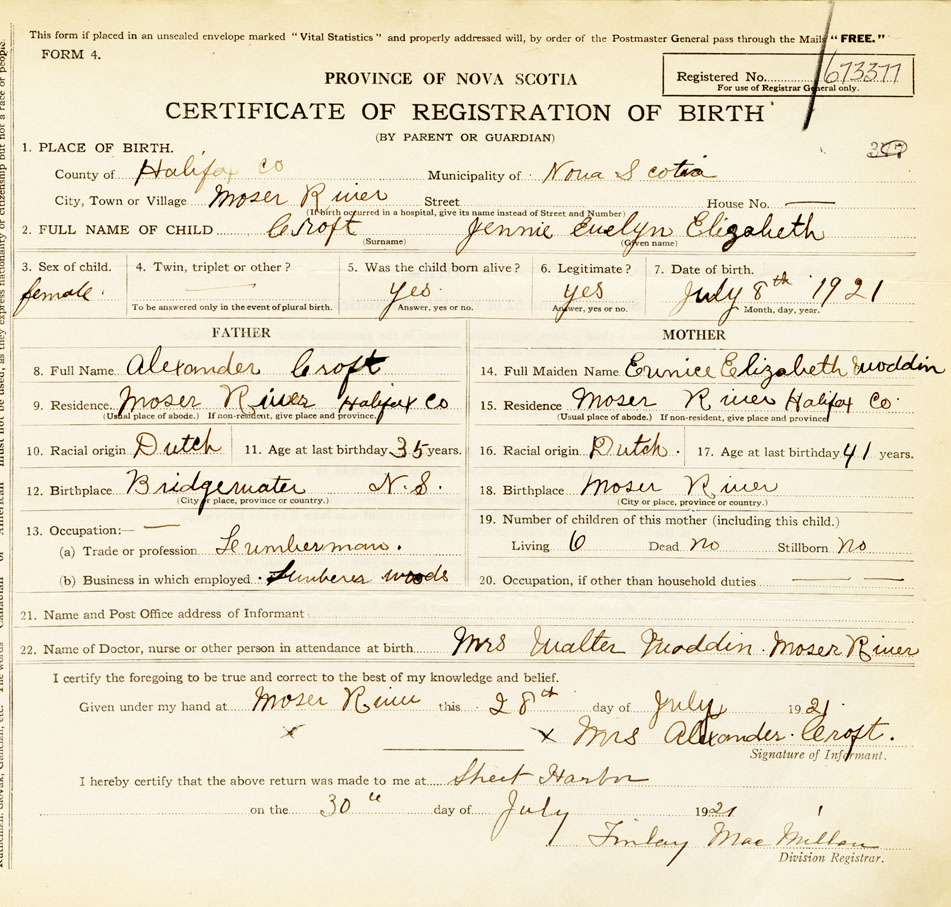 This form if placed in an unsealed envelope marked "Vital Statistics" and properly addressed will, by order of the Postmaster General pass through the Mails "FREE."
FORM 4.
PROVINCE OF NOVA SCOTIA
Registered No. 673377
For use of Registrar General only.
CERTIFICATE OF REGISTRATION OF BIRTH
(BY PARENT OR GUARDIAN)
1. PLACE OF BIRTH.
County of Halifax Co Municipality of Nova Scotia
City, Town or Village Moser River Street House No. —
(If birth occurred in a hospital, give its name instead of Street and Number)
2. FULL NAME OF CHILD Croft Jennie Evelyn Elizabeth
(Surname) (Given name)
3. Sex of child. 4. Twin, triplet or other? 5. Was the child born alive? 6. Legitimate? 7. Date of birth.
female. — yes. yes July 8th 1921
To be answered only in the event of plural birth. Answer, yes or no. Answer, yes or no. Month, day, year.
FATHER MOTHER
8. Full Name Alexander Croft 14. Full Maiden Name Eunice Elizabeth Moddin
9. Residence. Moser River Halifax Co 15. Residence Moser River Halifax Co.
(Usual place of abode.) If non-resident, give place and province. (Usual place of abode.) If non-resident, give place and province
10. Racial origin Dutch 11. Age at last birthday 35 years. 16. Racial origin Dutch. 17. Age at last birthday 41 years.
12. Birthplace Bridgewater N.S. 18. Birthplace Moser River
(City or place, province or country.) (City or place, province or country.)
13. Occupation:— — 19. Number of children of this mother (including this child.)
(a) Trade or profession Lumberman. Living 6 Dead No Stillborn No
(b) Business in which employed woods 20. Occupation, if other than household duties — —
21. Name and Post Office address of Informant.
22. Name of Doctor, nurse or other person in attendance at birth Mrs Walter Moddin. Moser River
I certify the foregoing to be true and correct to the best of my knowledge and belief.
Given under my hand at Moser River this 28th day of July 1921.
x x Mrs Alexander. Croft.
Signature of Informant.
I hereby certify that the above return was made to me at Sheet Harbor
on the 30th day of July 1921
Finlay MacMillan
Division Registrar.